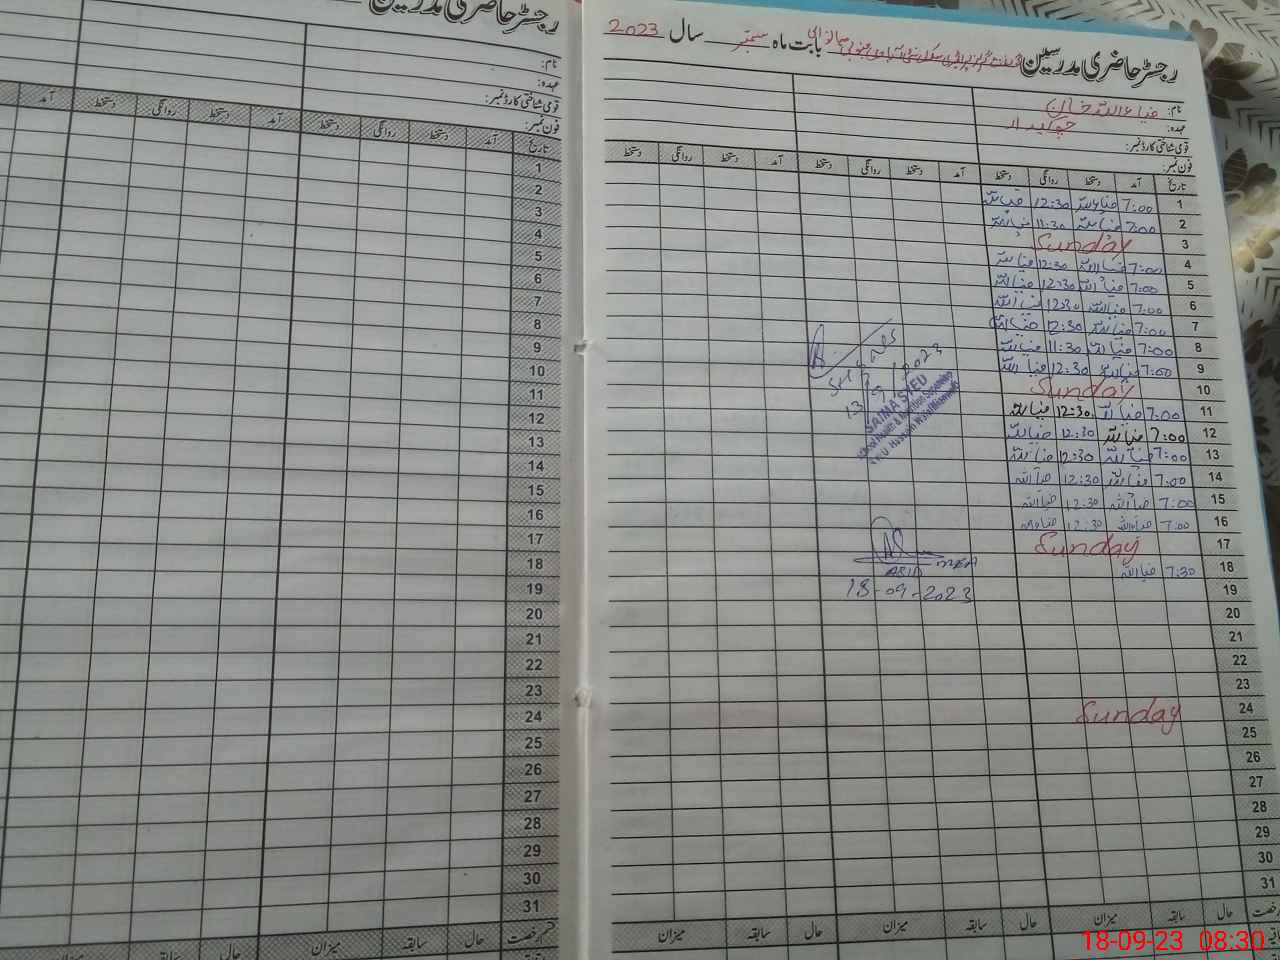 رجسٹر حاضری مدرسین
نام:
عہدہ:
قومی شناختی کارڈ نمبر:
فون نمبر:
تاریخ آمد دستخط روانگی دستخط آمد دستخط روانگی دستخط آمد
1
2
3
4
5
6
7
8
9
10
11
12
13
14
15
16
17
18
19
20
21
22
23
24
25
26
27
28
29
30
31
قسم رخصت حال سابقہ میزان حال سابقہ میزان
رجسٹر حاضری مدرسین بابت ماہ ستمبر سال 2023
نام: ضیاء اللہ خان
عہدہ: چوکیدار
قومی شناختی کارڈ نمبر:
فون نمبر:
تاریخ آمد دستخط روانگی دستخط آمد دستخط روانگی دستخط آمد دستخط روانگی دستخط
1 7:00 ضیاءاللہ 12:30 ضیاءاللہ
2 7:00 ضیاءاللہ 11:30 ضیاءاللہ
3 Sunday
4 7:00 ضیاءاللہ 12:30 ضیاءاللہ
5 7:00 ضیاءاللہ 12:30 ضیاءاللہ
6 7:00 ضیاءاللہ 12:30 ضیاءاللہ
7 7:00 ضیاءاللہ 12:30 ضیاءاللہ
8 7:00 ضیاءاللہ 11:30 ضیاءاللہ
9 7:00 ضیاءاللہ 12:30 ضیاءاللہ
10 Sunday
11 7:00 ضیاءاللہ 12:30 ضیاءاللہ
12 7:00 ضیاءاللہ 12:30 ضیاءاللہ
13 7:00 ضیاءاللہ 12:30 ضیاءاللہ
14 7:00 ضیاءاللہ 12:30 ضیاءاللہ
15 7:00 ضیاءاللہ 12:30 ضیاءاللہ
16 7:00 ضیاءاللہ 12:30 ضیاءاللہ
17 Sunday
18 7:30 ضیاءاللہ
19
20
21
22
23
24 Sunday
25
26
27
28
29
30
31
رخصت حال سابقہ میزان حال سابقہ میزان حال سابقہ میزان
13/9/2023
SAIMA SYED
School Health & Nutrition Supervisor
18-09-2023
18-09-23 08:30